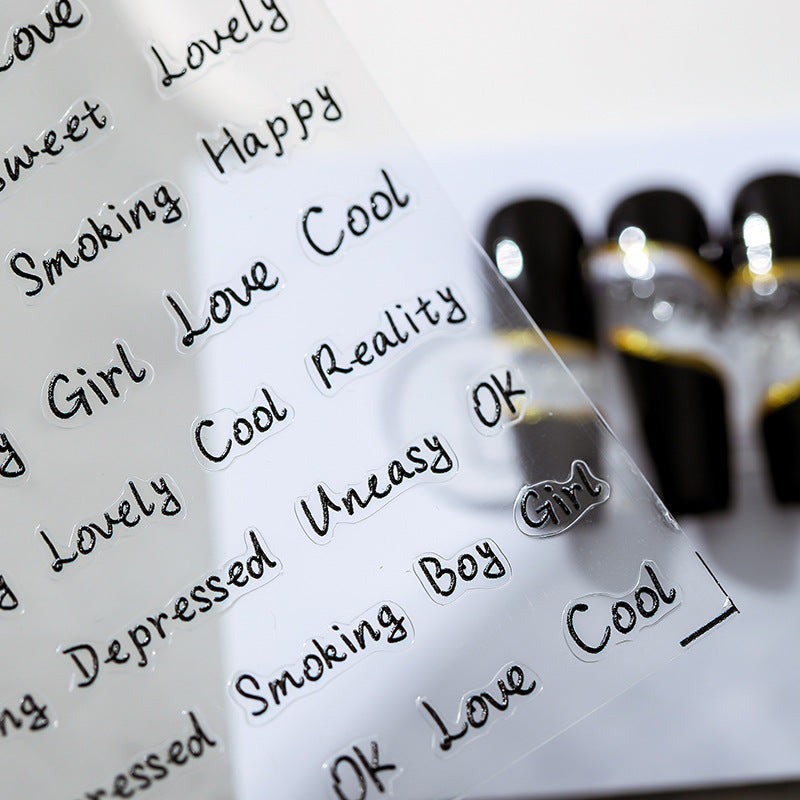 Love
Sweet Lovely
Smoking Happy
y Girl Love Cool
y Lovely Cool Reality
ng Depressed Uneasy OK
ressed Smoking Boy Girl
OK Love Cool